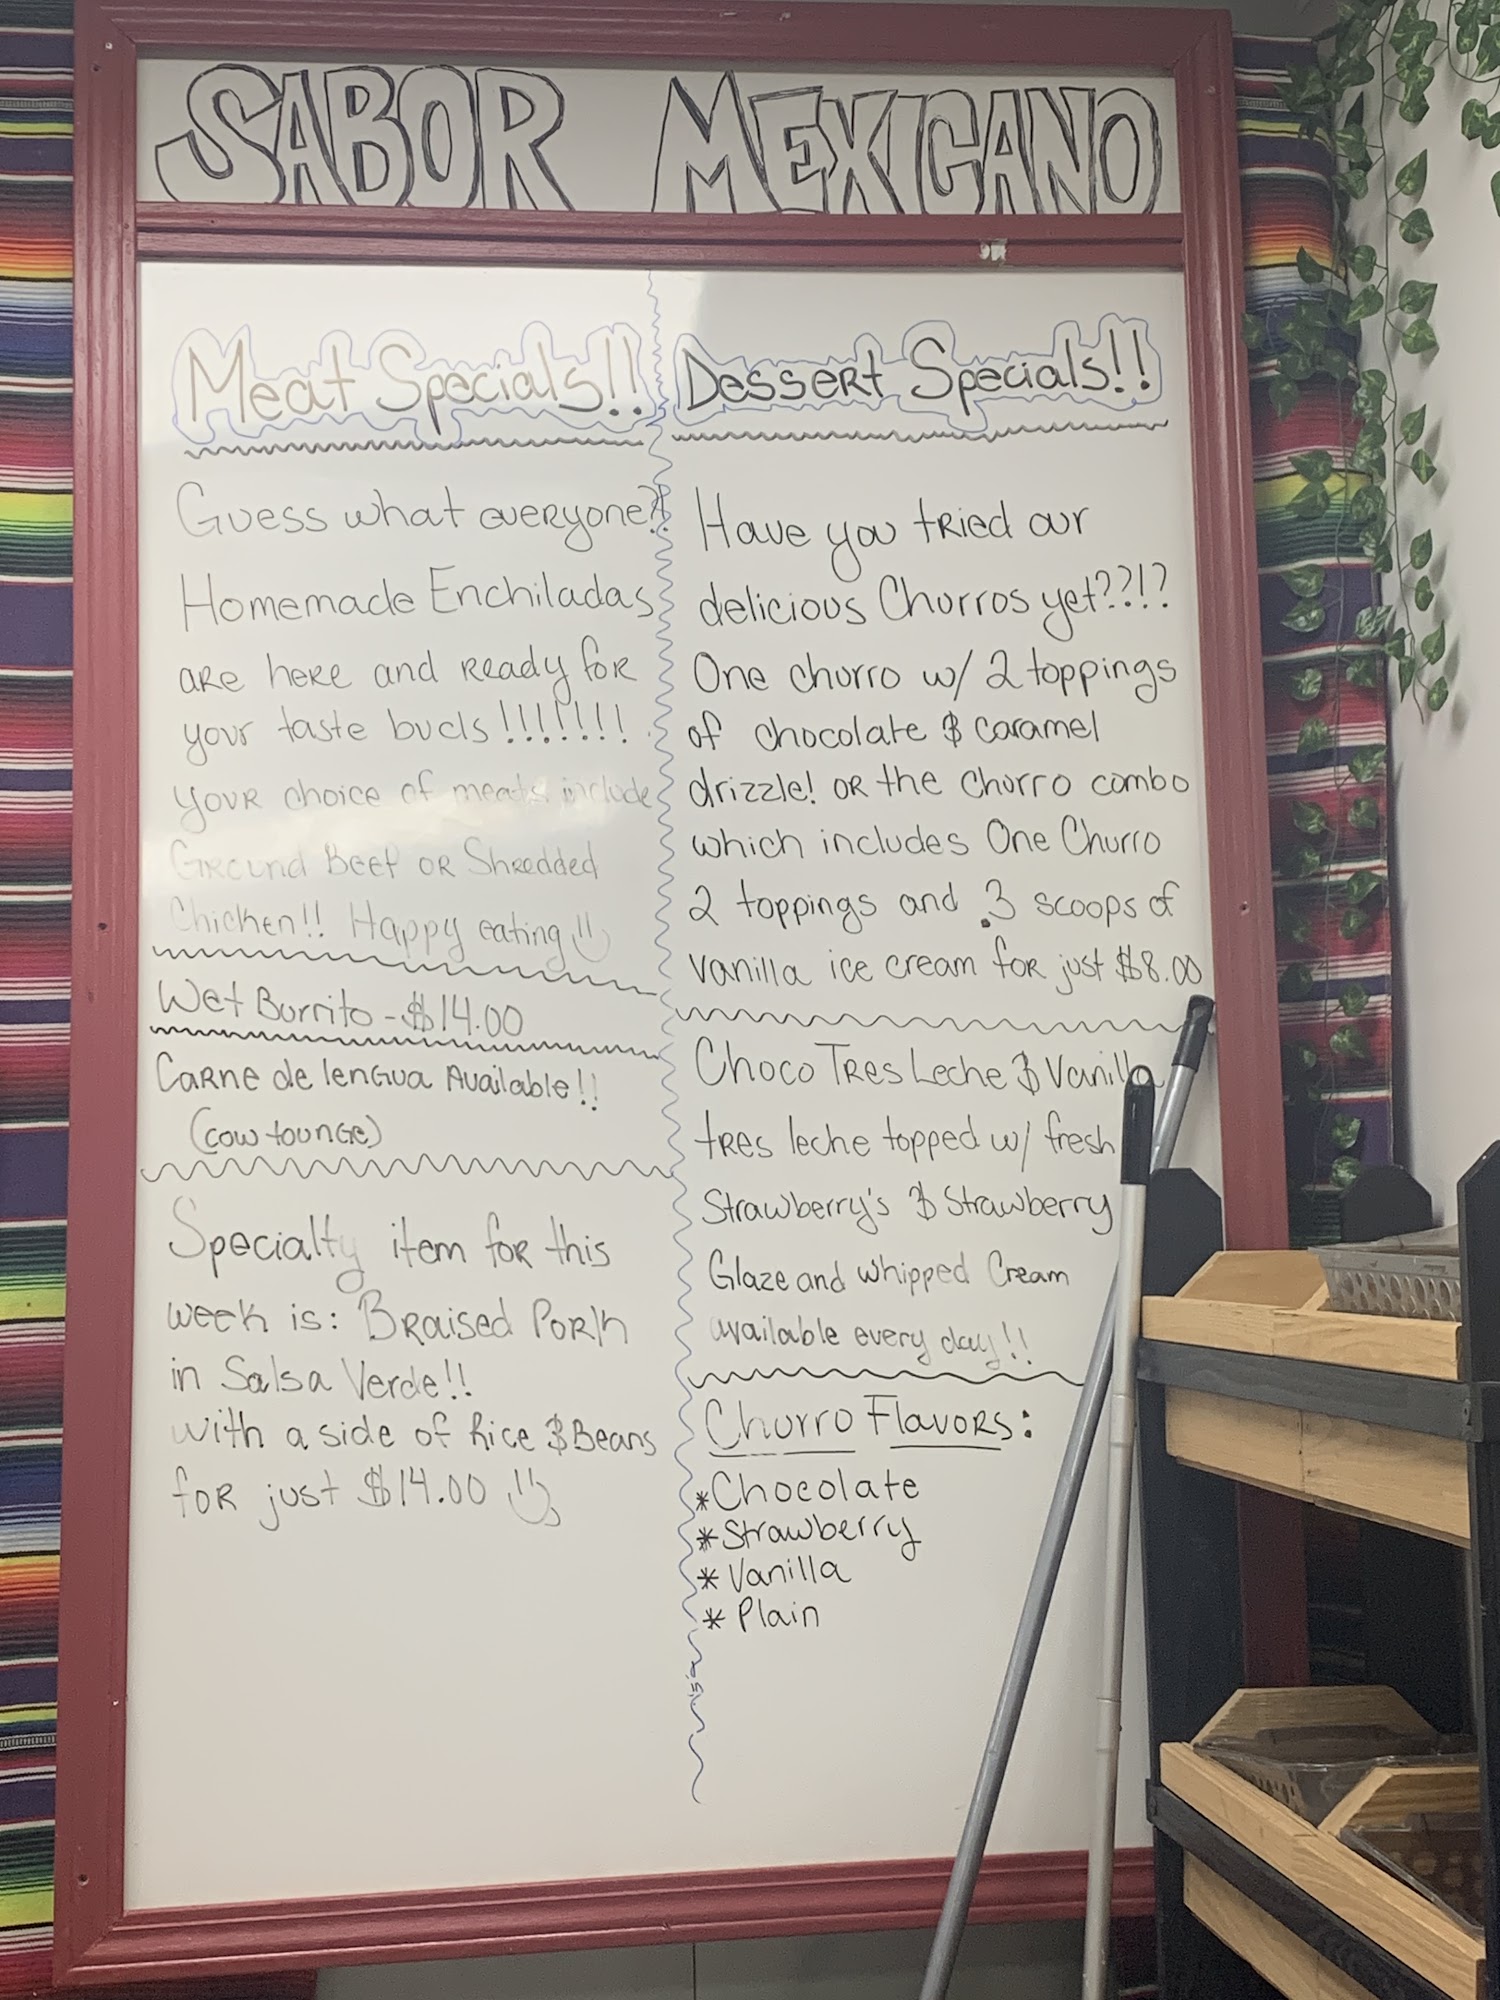 SABOR MEXICANO
Meat Specials!!
Guess what everyone?!
Homemade Enchiladas
are here and ready for
your taste buds!!!!!!!
your choice of meats include
Ground Beef or Shredded
Chicken!! Happy eating
Wet Burrito - $14.00
Carne de lengua Available!!
(cow tounge)
Specialty item for this
week is: Braised Pork
in Salsa Verde!!
with a side of Rice & Beans
for just $14.00
Dessert Specials!!
Have you tried our
delicious Churros yet??!?
One churro w/ 2 toppings
of chocolate & caramel
drizzle! or the Churro combo
which includes One Churro
2 toppings and 3 scoops of
vanilla ice cream for just $8.00
Choco Tres Leche & Vanilla
tres leche topped w/ fresh
Strawberry's & Strawberry
Glaze and whipped Cream
available every day!!
Churro Flavors:
*Chocolate
*Strawberry
*Vanilla
*Plain